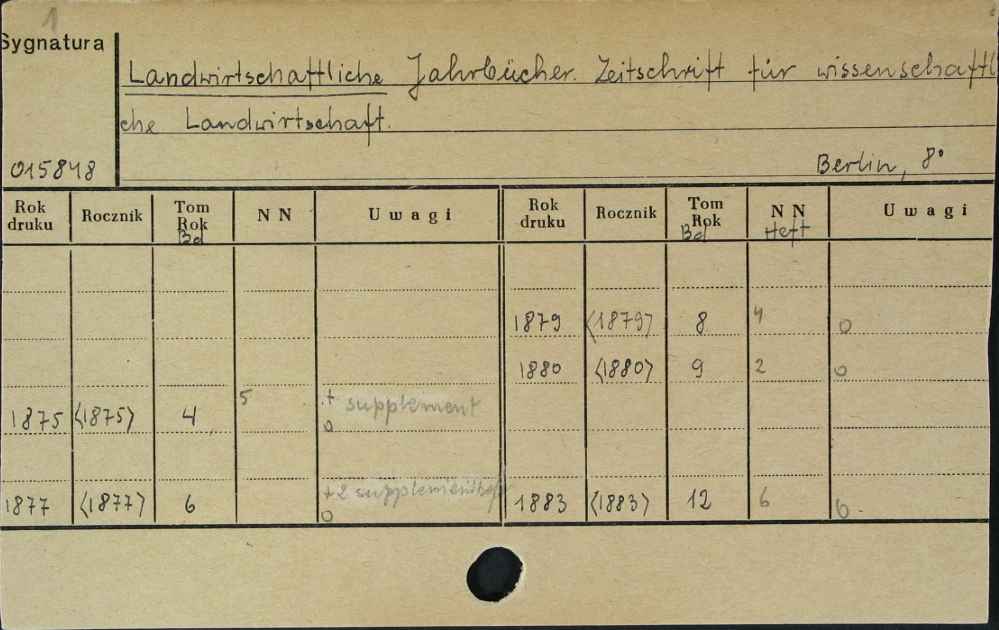 1
Sygnatura
Landwirtschaftliche Jahrbücher. Zeitschrift für wissenschaftl
che Landwirtschaft.
015848
Berlin, 8°
Rok druku Rocznik Tom Rok Bd N N Uwagi Rok druku Rocznik Tom Rok Bd N N Heft Uwagi
1879 <1879> 8 4 o
1880 <1880> 9 2 o
1875 <1875> 4 5 + supplement o
1877 <1877> 6 +2 o 1883 <1883> 12 6